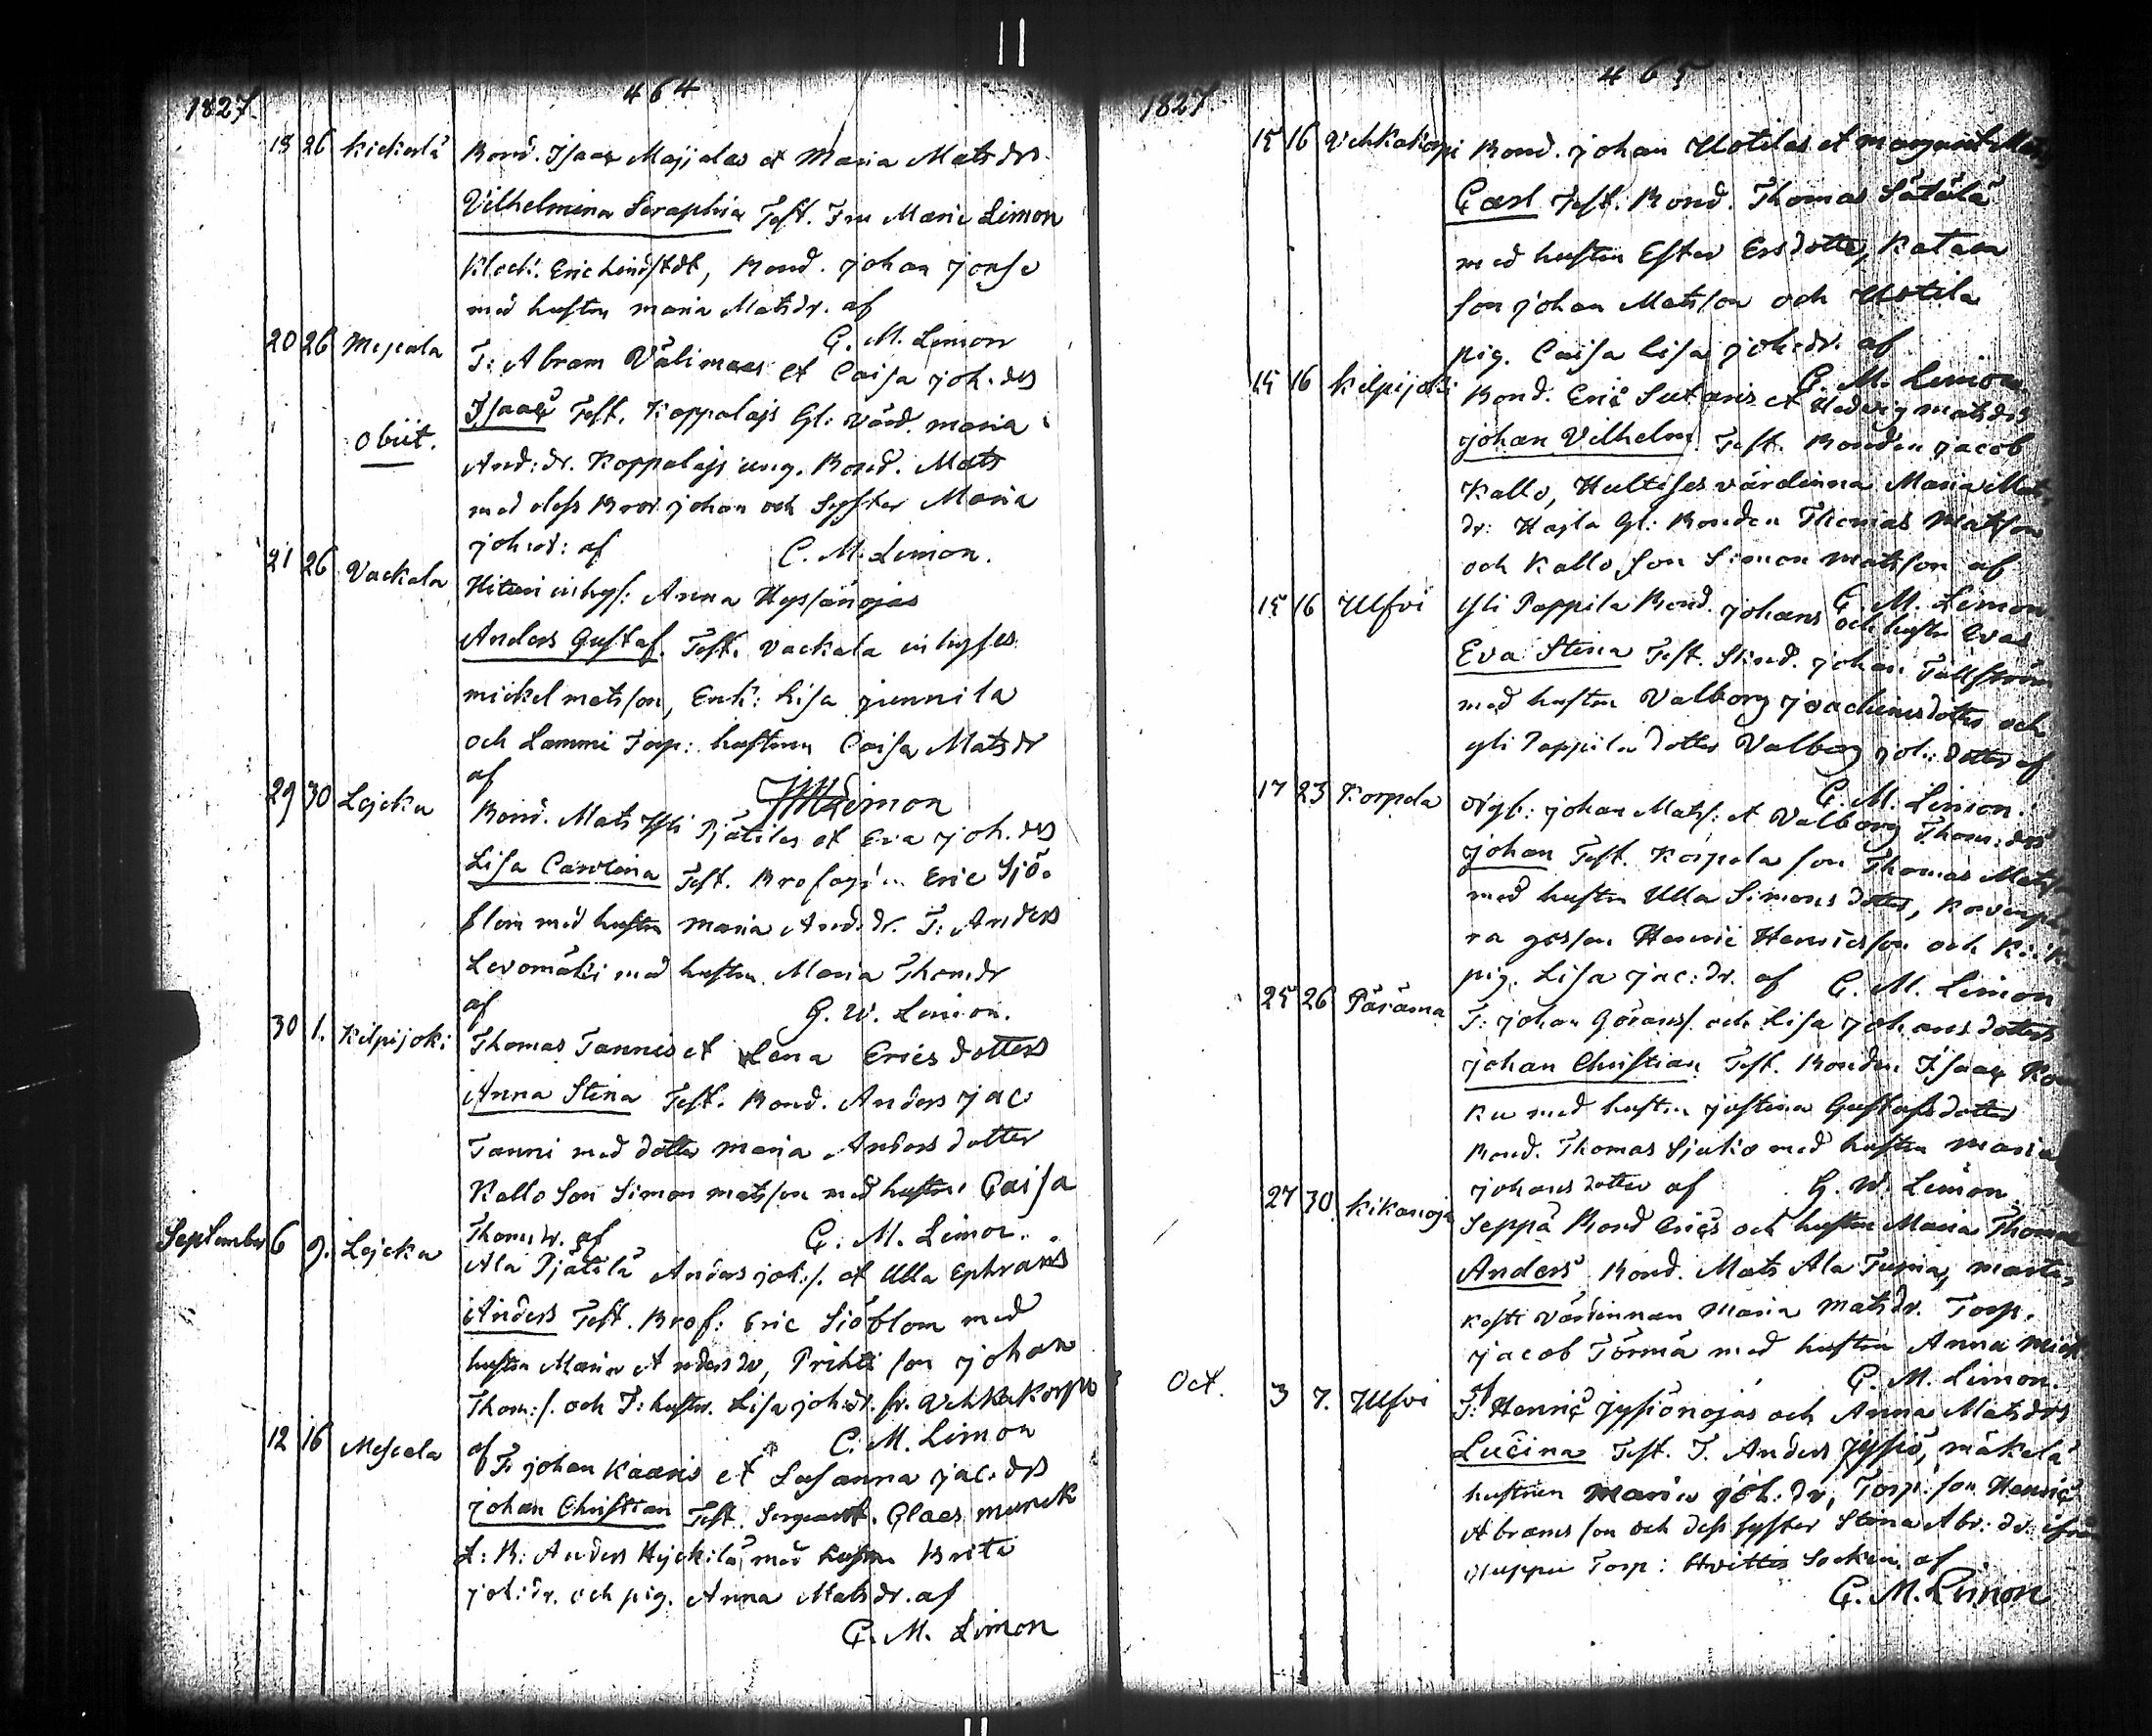 1827.
464
18 26 Kickerlä Bond. Isaac Majjalas et Maria Matsdrs
Vilhelmina Seraphia Test. Fru Marie Limon
Klock. Eric Lindstdt, Bond. Johan Jonse
med hustru Maria Matsdr. af
C. M. Limon
20 26 Mescala T: Abram Välimaas et Caisa Joh. drs
Isaac Test. Koppalajs Gl: Värd. Maria
obiit.
And: dr. Koppalajs ung. Bond. Mats
med dess Bror Johan och Syster Maria
Joh:dr: af C. M. Limon.
21 26 Vackala Hiteri inhys: Anna Hyssänojas
Anders Gustaf. Test. Vackala inhyses
Mickel Matsson, Enk: Lisa Junnila
och Lammi Torp: hustrun Caisa Matsdr
af
Limon
29 30 Lojcku Bond. Mats Yli Pjätilas et Eva Joh. drs
Lisa Carolina Test. Brofog: Eric Sjö-
blom med hustru Maria And: dr. T: Anders
Levomäki med hustru Maria Thomdr
af G. W. Limon.
30 1. Kilpijoki Thomas Tannis et Lena Ericsdotters
Anna Stina Test. Bond. Anders Jac
Tanni med dotter Maria Andersdotter
Kallo Son Simon Matsson med hustru Caisa
Thomdr. af C. M. Limon.
September 6 9. Lojcku Ala Pjätilä Anders Joh: s. et Ulla Ephraims
Anders Test. Brof: Eric Sjöblom med
hustru Maria Andersdr, Prihti son Johan
Thom: s. och T: hustru. Lisa Joh:dr. fr. Vehkakorpi
af C. M. Limon
12 16 Mescala T: Johan Kaaris et Susanna Jac: drs
Johan Christian Test. Sergeant. Claes Munck
L: B: Anders Hyckilä, med hustru Brita
Joh: dr. och pig. Anna Matsdr. af
C. M. Limon
1827
465
15 16 Vehkakorpi Bond. Johan Uotilas et Margaret Mats
Carl Test. Bond. Thomas Sätälä
med hustru Ester Ersdotter, Katara
son Johan Matsson och Uotila
pig. Caisa Lisa Joh:dr. af
C. M. Limon.
15 16 Kilpijoki Bond. Eric Sutaris et Hedvig Matsdrs
Johan Vilhelm. Test. Bonden Jacob
Kallo, Hultises värdinna Maria Mats
dr: Hajla Gl: Bonden Thomas Matsson
och Kallo son Simon Matsson af
C. M. Limon
15 16 Ulfvi Yli Pappila Bond. Johans och hustru Evas
Eva Stina Test. Skred. Johan Tällström
med hustru Valborg Joachimsdotter och
Yli Pappila dotter Valborg Joh: dotter af
C. M. Limon.
17 23 Korpela Nyb: Johan Mats: et Valborg Thom: drs
Johan Test. Korpela son Thomas Matss
med hustru Ulla Simonsdotter,
ra gossen Henric Henricsson och
pig. Lisa Jac: dr. af C. M. Limon
25 26 Pärämä T: Johan Göranss. och Lisa Johansdotters
Johan Christian Test. Bonden Isaac
ku med hustru Justina Gustafsdotter
Bond. Thomas Sjuko med hustru Maria
Johansdotter af G. W. Limon.
27 30 Kikanoja Seppä Bond Erics och hustru Maria Thomas
Anders Bond. Mats Ala Tuma, Martu,
kosti värdinnan Maria Matsdr. Torp.
Jacob Törmä med hustru Anna Mick
af C. M. Limon.
Oct. 3 7. Ulfvi T: Henric Jyssönojas och Anna Matsdrs
Lucina Test. T. Anders Jyssö, Mäkelä
hustrun Maria Joh: dr, Torp: son Henric
Abramsson och dess syster Stina Abr: dr. ifrån
Nuppu Torp: Hvittis Socken af
C. M. Limon